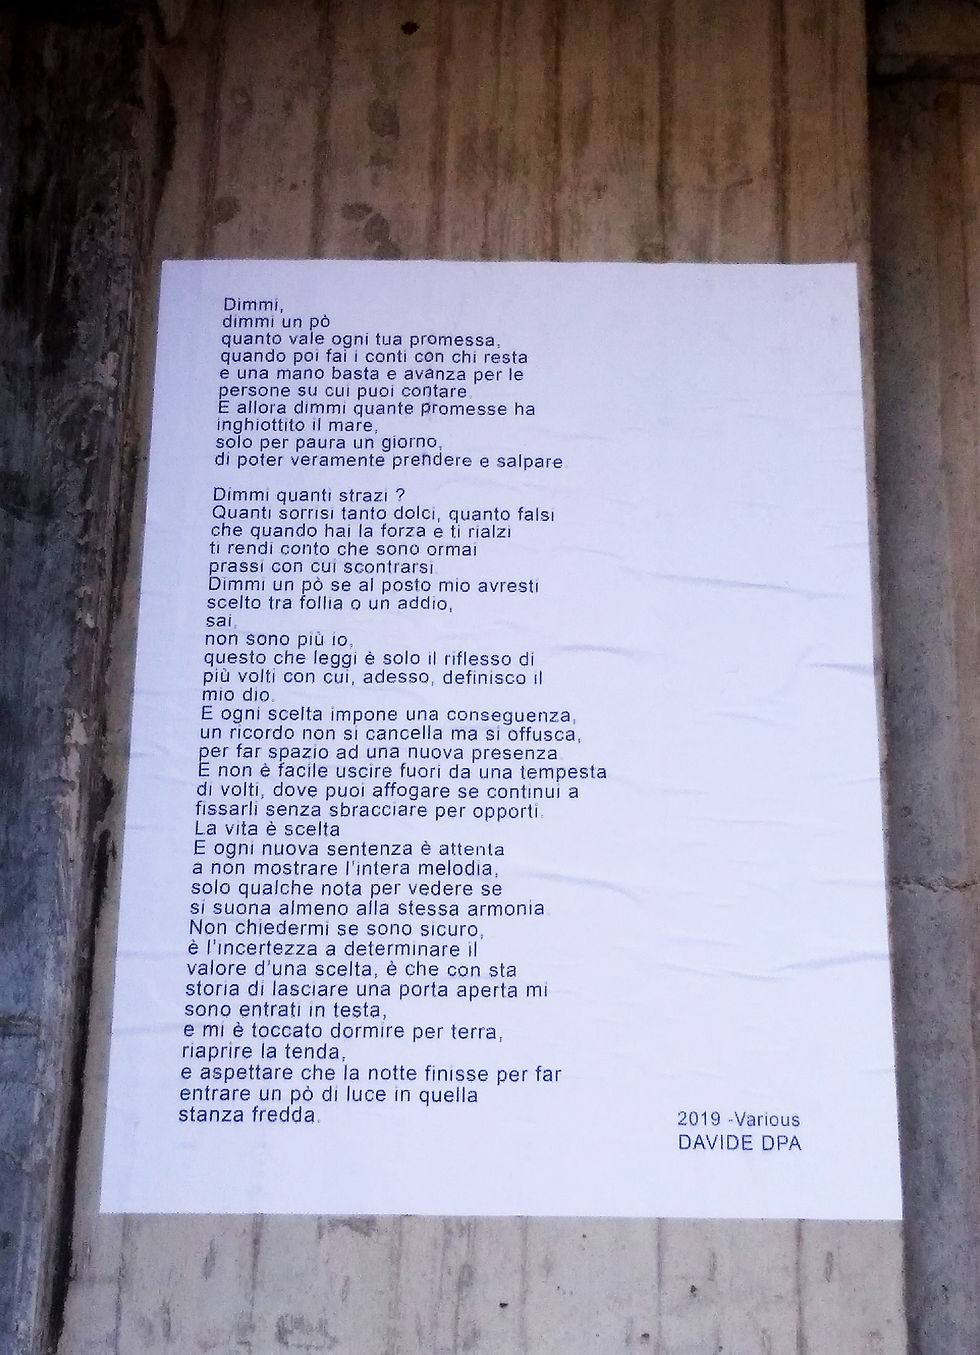 Dimmi,
dimmi un pò
quanto vale ogni tua promessa,
quando poi fai i conti con chi resta
e una mano basta e avanza per le
persone su cui puoi contare.
E allora dimmi quante promesse ha
inghiottito il mare,
solo per paura un giorno,
di poter veramente prendere e salpare.
Dimmi quanti strazi ?
Quanti sorrisi tanto dolci, quanto falsi
che quando hai la forza e ti rialzi
ti rendi conto che sono ormai
prassi con cui scontrarsi.
Dimmi un pò se al posto mio avresti
scelto tra follia o un addio,
sai,
non sono più io,
questo che leggi è solo il riflesso di
più volti con cui, adesso, definisco il
mio dio.
E ogni scelta impone una conseguenza,
un ricordo non si cancella ma si offusca,
per far spazio ad una nuova presenza.
E non è facile uscire fuori da una tempesta
di volti, dove puoi affogare se continui a
fissarli senza sbracciare per opporti.
La vita è scelta
E ogni nuova sentenza è attenta
a non mostrare l'intera melodia,
solo qualche nota per vedere se
si suona almeno alla stessa armonia.
Non chiedermi se sono sicuro,
è l'incertezza a determinare il
valore d'una scelta, è che con sta
storia di lasciare una porta aperta mi
sono entrati in testa,
e mi è toccato dormire per terra,
riaprire la tenda,
e aspettare che la notte finisse per far
entrare un pò di luce in quella
stanza fredda.
2019 -Various
DAVIDE DPA